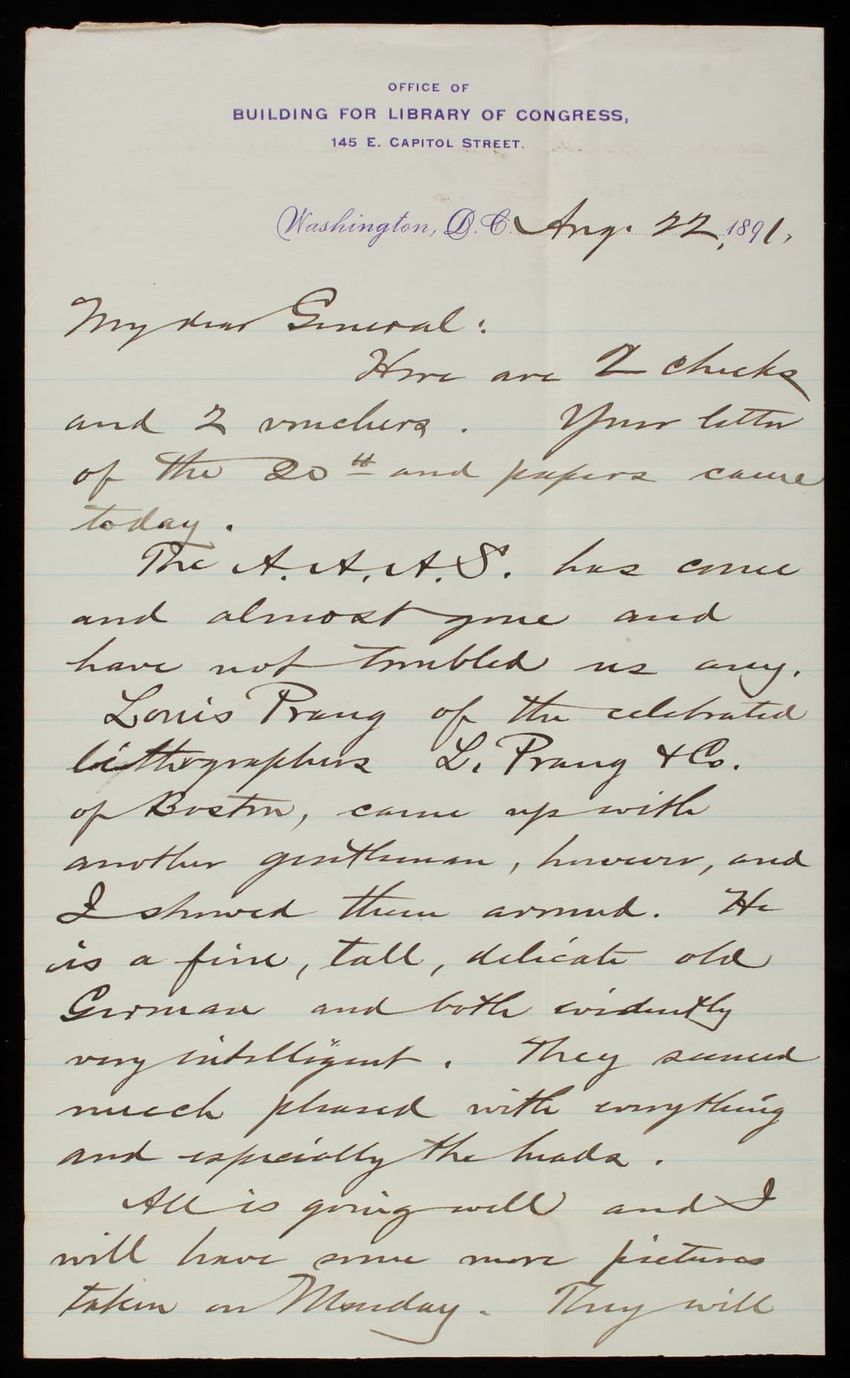 OFFICE OF
BUILDING FOR LIBRARY OF CONGRESS,
145 E. CAPITOL STREET.
Washington, D.C. Aug. 22, 1891.
My dear General:
Here are 2 checks
and 2 vouchers. Your letter
of the 20th and papers came
today.
The A.A.A.S. has come
and almost gone and
have not troubled us any.
Louis Prang of the celebrated
lithographers L. Prang & Co.
of Boston, came up with
another gentleman, however, and
I showed them around. He
is a fine, tall, delicate old
German and both evidently
very intelligent. They seemed
much pleased with everything
and especially the heads.
All is going well and I
will have some more pictures
taken on Monday. They will